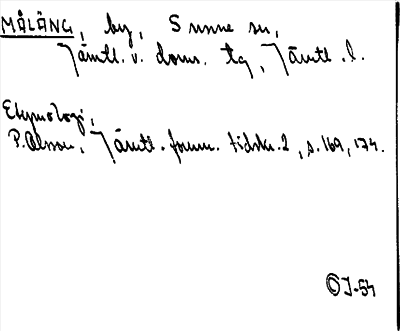 MÅLÅNG, by, Sunne sn,
Jämtl. v. doms. tg, Jämtl. l.
Etymologi;
P. Olsson, Jämtl. fornm. tidskr. 2, s. 169, 174.
ⒸJ-54